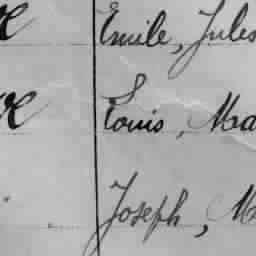 Emile, Jules
Louis, Ma
Joseph, M